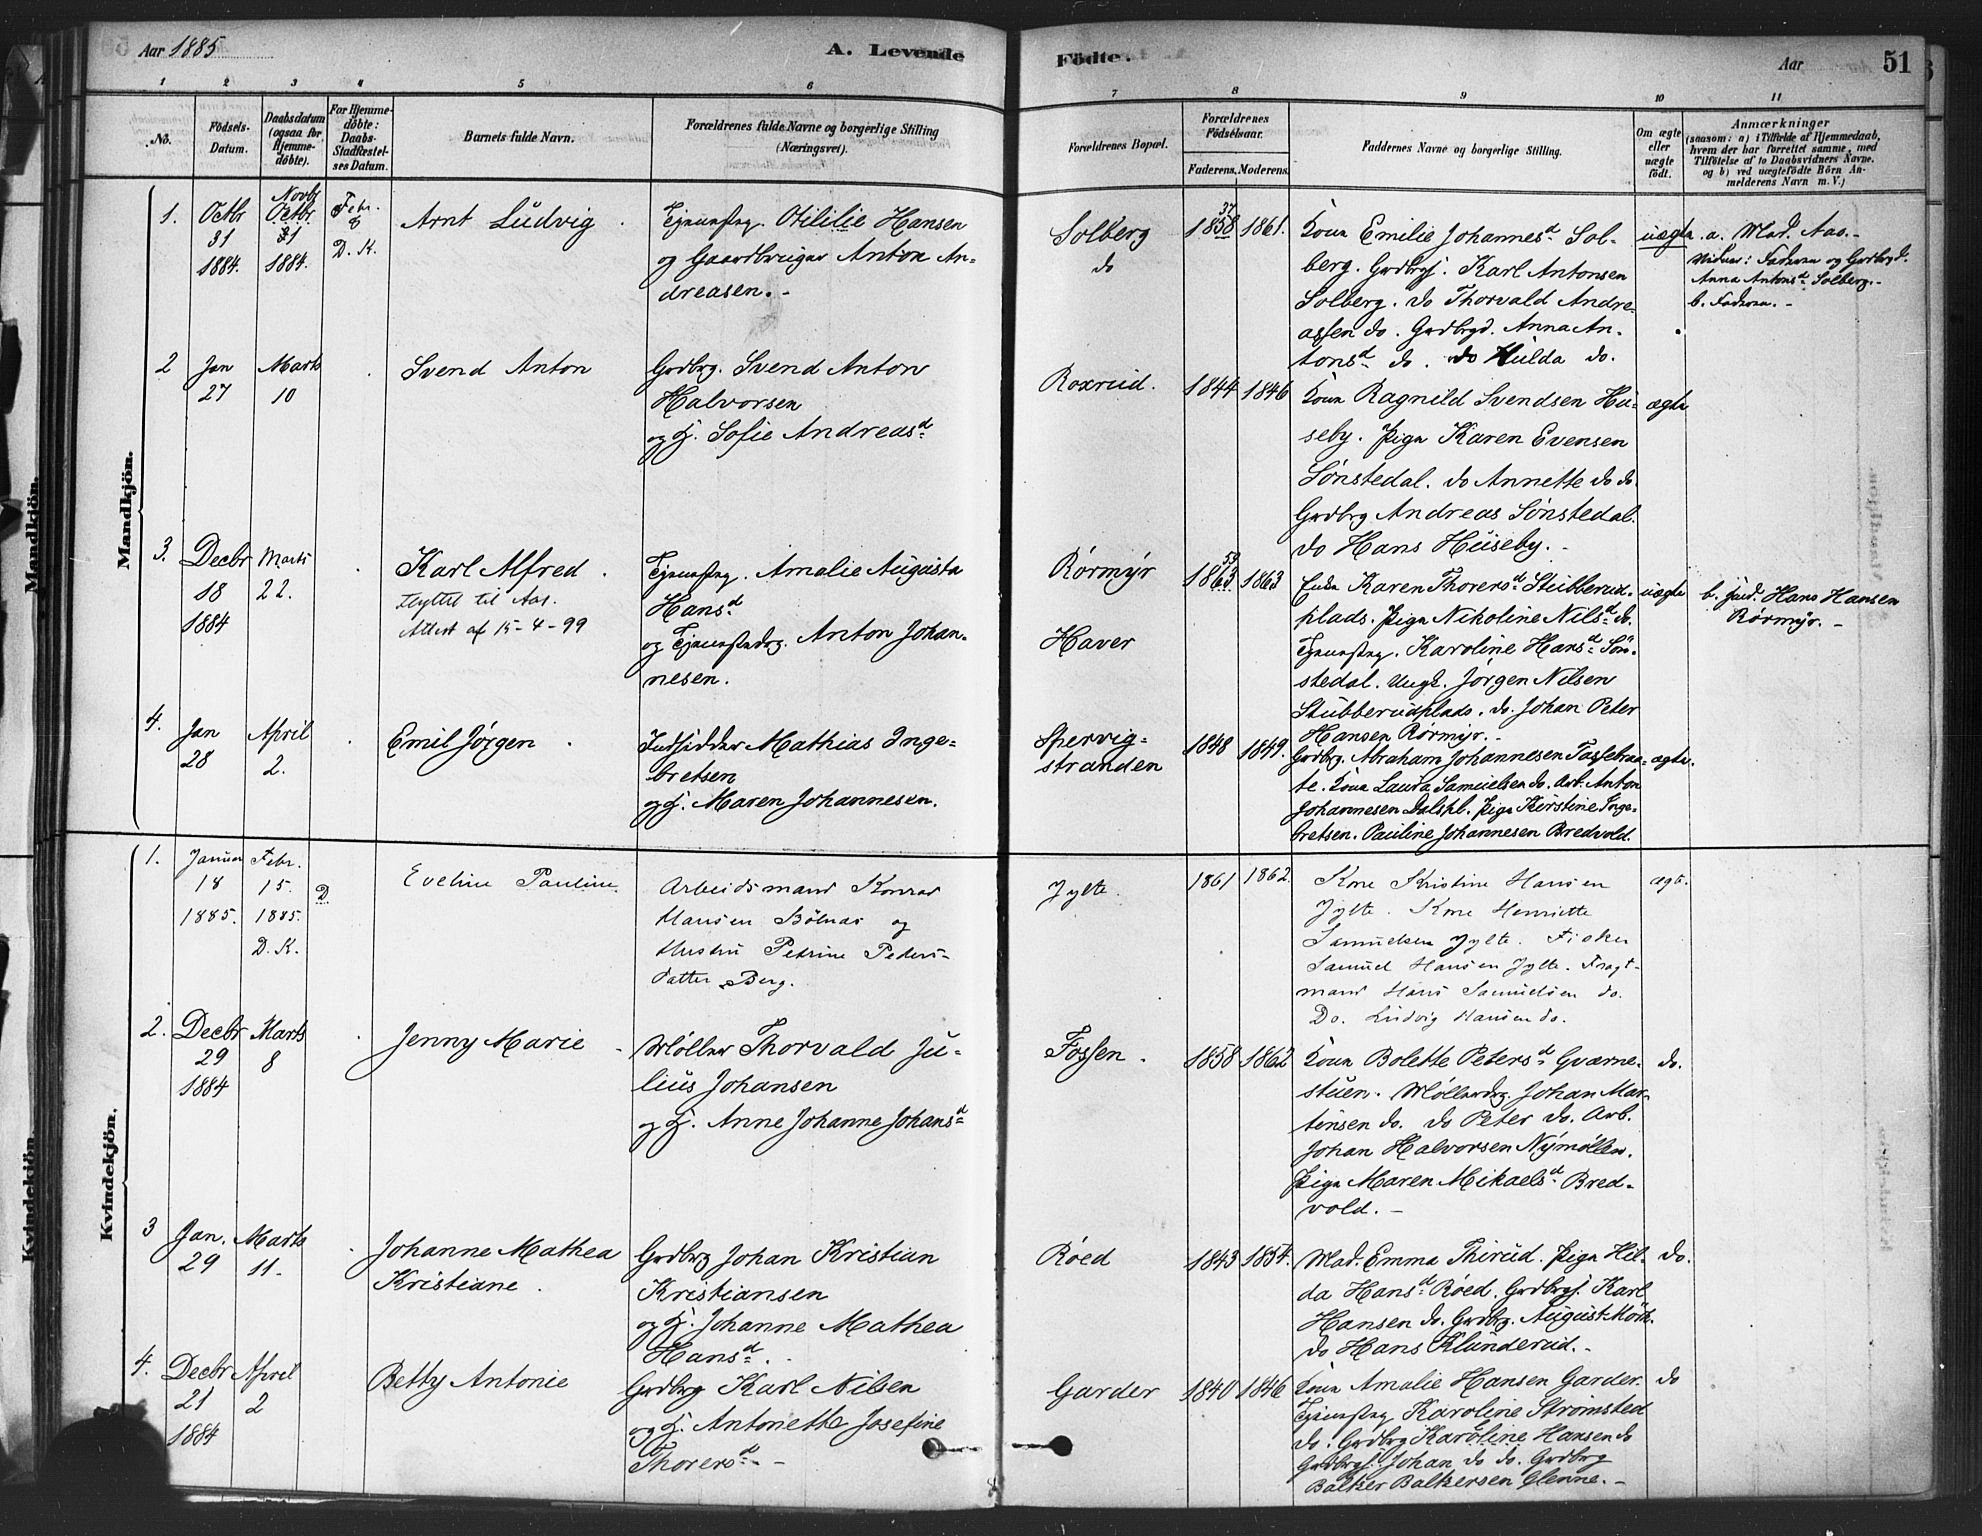 Aar 1885
A. Levende
Födte.
Aar
51
1 2 3 4 5 6 7 8 9 10 11
No.
Födsels-
Datum.
Daabsdatum
(ogsaa for
Hjemme-
døbte).
For Hjemme-
døbte:
Daabs-
Stadfæstel-
ses Datum.
Barnets fulde Navn.
Forældrenes fulde Navne og borgerlige Stilling
(Næringsvei).
Forældrenes Bopæl.
Forældrenes
Födselsaar.
Faderens. Moderens.
Faddernes Navne og borgerlige Stilling.
Om ægte
eller
uægte
født.
Anmærkninger
(saasom: a) i Tilfælde af Hjemmedaab,
hvem der har forrettet samme, med
Tilföielse af to Daabsvidners Navne.
og b) ved uægtefödte Börn An-
melderens Navn m. V.)
Mandkjön.
1.
Octbr
31
1884.
Novbr
Octbr
31
1884.
Febr.
8
D. K.
Arnt Ludvig
Tjenestpg. Otililie Hansen
og Gaardbruger Anton An-
dreasen.
Solberg
do
37
1858
1861.
Kone Emilie Johannesd Sol-
berg. Grdbrgs. Karl Antonsen
Solberg. do Thorvald Andre-
assen do. Grdbrgd. Anna An-
tonsd do. do Hulda do.
uægte
a. Mad. Aas.
Vidner: Faderen og Grdbrgd.
Anna Antonsd Solberg.
b. Faderen.
2
Jan
27
Marts
10
Svend Anton
Grdbrg. Svend Anton
Halvorsen
og H. Sofie Andreasd
Roxrud.
1844
1846
Kone Ragnild Svendsen Hu-
seby. Pige Karen Evensen
Sønstedal. do Annette do do.
Grdbrg Andreas Sønstedal.
do Hans Huseby.
ægte
3.
Decbr
18
1884
Marts
22.
Karl Alfred
flyttet til Aas.
Attest af 15-4-99
Tjenestpg. Amalie Augusta
Hansd
og Tjenestedrg. Anton Johan-
nesen.
Rørmyr
Haver
59
1863
1863
Enke Karen Thorersd Stubberud-
plads. Pige Nikoline Nilsd do.
Tjenestpg. Karoline Hansd Søn-
stedal. Ungk. Jørgen Nilsen
Stubberudplads. do. Johan Peter
Hansen Rørmyr.
uægte
b. Ind. Hans Hansen
Rørmyr.
4.
Jan
28
April
2.
Emil Jørgen
Indsidder Mathias Inge-
bretsen
og H. Maren Johannesen.
Spervig-
stranden
1848
1849.
Grdbrg. Abraham Johannesen Tassebraa-
te. Kone Laura Samuelsen do. Arb. Anton
Johannesen Dalspl. Pige Kirstine Inge-
bretsen. Pauline Johannesen Bredvold.
ægte.
Kvindekjön.
1.
Januar
18
1885.
Febr.
15.
1885.
D. K.
D.
Eveline Pauline
Arbeidsmand Konrad
Hansen Bölnas og
Hustru Petrine Peders-
datter Berg.
Jylte
1861
1862.
Kone Kristine Hansen
Jylte. Kone Henriette
Samuelsen Jylte. Fisker
Samuel Hansen Jylte. Fragt-
mand Hans Samuelsen do.
Do. Ludvig Hansen do.
ægt.
2.
Decbr
29
1884
Marts
8
Jenny Marie
Møller Thorvald Ju-
lius Johansen
og H. Anne Johanne Johansd
Fossen.
1858
1862
Kone Bolette Petersd Gværne-
stuen. Møllerdrg. Johan Mar-
tinsen do. do Peter do. Arb.
Johan Halvorsen Nymøllen.
Pige Maren Mikaelsd Bred-
vold.
do.
3
Jan.
29
Marts
11.
Johanne Mathea
Kristiane.
Grdbrg Johan Kristian
Kristiansen
og H. Johanne Mathea
Hansd.
Røed
1843
1854.
Mad. Emma Thirud. Pige Hil-
da Hansd Røed. Grdbrgs. Karl
Hansen do. Grdbrg. August Mörk.
do Hans Klunderud.
do.
4.
Decbr
21
1884
April
2
Betty Antonie
Grdbrg Karl Nilsen
og H. Antonette Josefine
Thorersd
Garder
1840
1846
Kone Amalie Hansen Garder.
Tjenestpg Karoline Strømsted
do. Grdbrg Karoline Hansen do
Grdbrgs. Johan do do. Grdbrg
Baltzer Baltzersen Glenne.
do